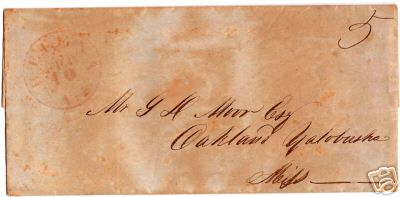 5
10
Mr G H Moor Esq
Oakland Yalobusha
Miss
ebY